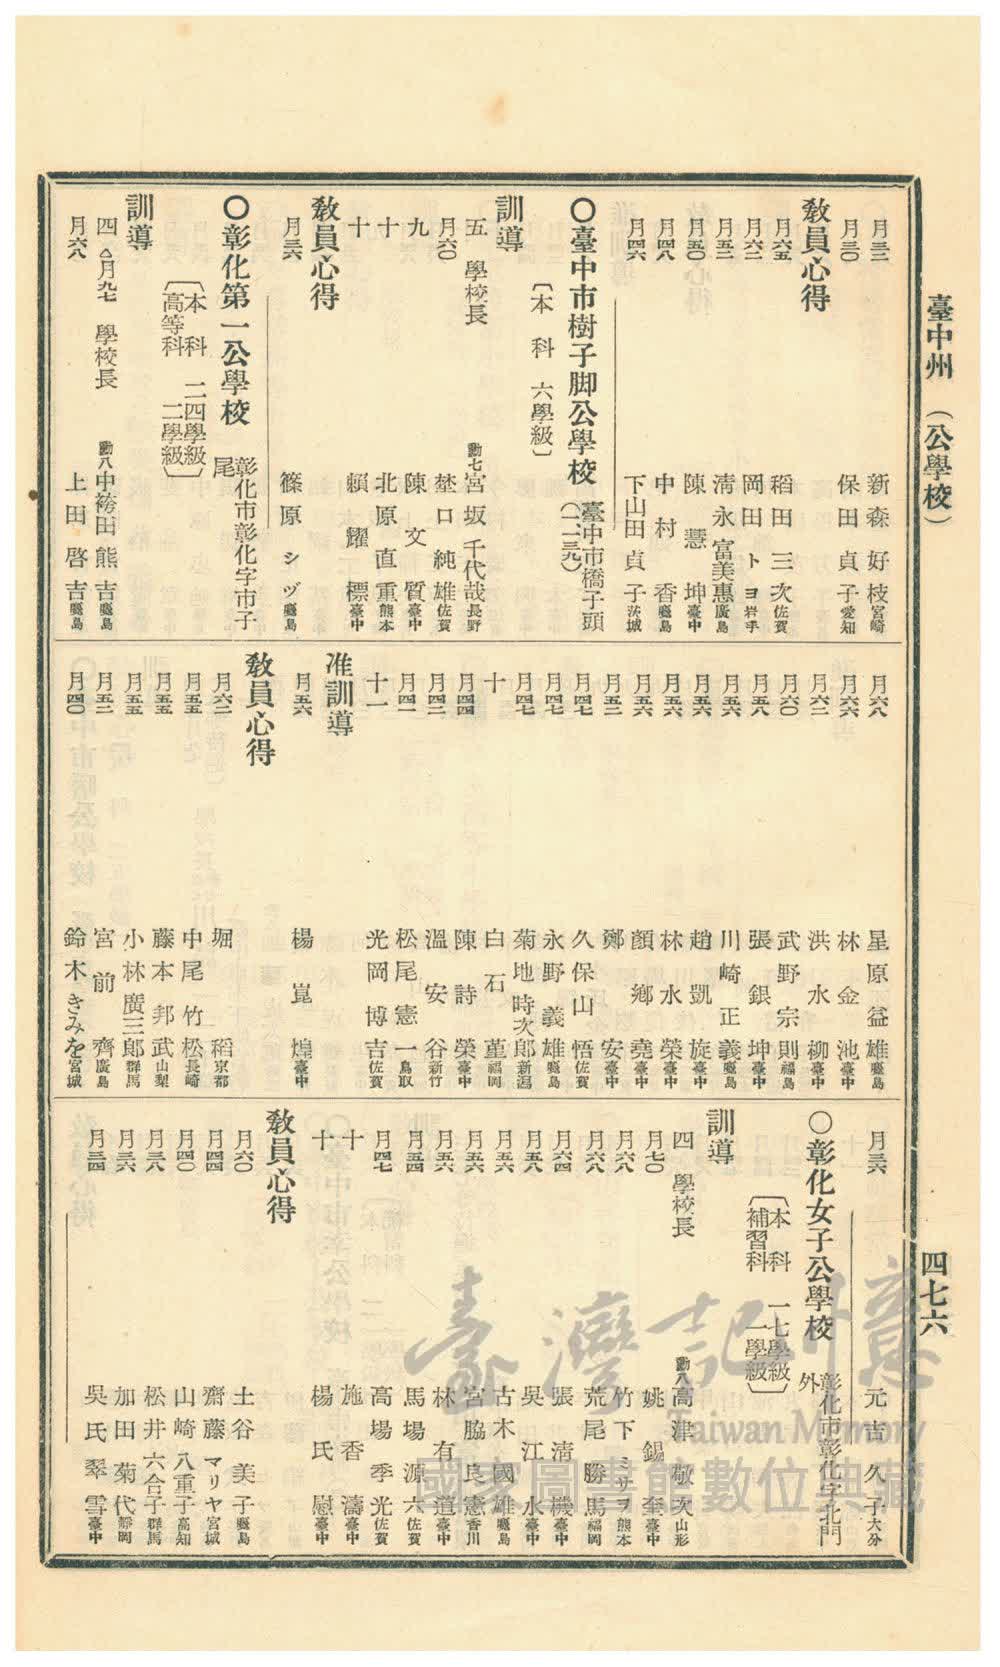 臺中州 (公學校)
四七六
月三三 新森好枝 宮崎
月三〇 保田貞子 愛知
敎員心得
月六五 稻田三次 佐賀
月六二 岡田トヨ 岩手
月五二 淸永富美惠 廣島
月五〇 陳慧坤 臺中
月四八 中村香 鹿島
月四六 下山田貞子 茨城
〇臺中市樹子脚公學校 臺中市橋子頭(二一三九)
〔本科 六學級〕
訓導
五 學校長 勳七 宮坂千代哉 長野
月六〇 埜口純雄 佐賀
九 陳文質 臺中
十 北原直重 熊本
十 賴耀標 臺中
敎員心得
月三六 篠原シヅ 鹿島
〇彰化第一公學校 彰化市彰化字市子尾
〔本科 二四學級
高等科 二學級〕
訓導
四 △月九七 學校長 勳八 中袴田熊吉 鹿島
月六八 上田啓吉 鹿島
月六八 星原益雄 鹿島
月六六 林金池 臺中
月六二 洪水柳 臺中
月六〇 武野宗則 福島
月五八 張銀坤 臺中
月五六 川崎正義 鹿島
月五六 趙凱旋 臺中
月五六 林水榮 臺中
月五六 顏鄉堯 臺中
月五二 鄭安 臺中
月四七 久保山悟 佐賀
月四七 永野義雄 鹿島
月四七 菊地時次郎 新潟
十 白石菫 福岡
月四四 陳詩榮 臺中
月四三 溫安谷 新竹
月四二 松尾憲一 鳥取
十一 光岡博吉 佐賀
准訓導
月五六 楊崑煌 臺中
敎員心得
月六二 堀稻 京都
月五五 中尾竹松 長崎
月五五 藤本邦武 山梨
月五五 小林廣三郎 群馬
月五二 宮前齊 廣島
月四〇 鈴木きみを 宮城
月三六 元吉久子 大分
〇彰化女子公學校 彰化市彰化字北門外
〔本科 一七學級
補習科 一學級〕
訓導
四 學校長 勳八 高津敬次 山形
月七〇 姚錫奎 臺中
月六八 竹下ミサヲ 熊本
月六六 荒尾勝馬 福岡
月六四 張淸機 臺中
月五八 吳江水 臺中
月五六 古木國雄 鹿島
月五六 宮脇良憲 香川
月五六 林有道 臺中
月五四 馬場源六 佐賀
月四七 高場季光 佐賀
十 施香濤 臺中
十 楊氏慰 臺中
敎員心得
月六〇 土谷美子 鹿島
月四四 齋藤マリヤ 宮城
月四〇 山崎八重子 高知
月三八 松井六合子 群馬
月三六 加田菊代 靜岡
月三四 吳氏翠雪 臺中
臺灣記憶
Taiwan Memory
國家圖書館數位典藏